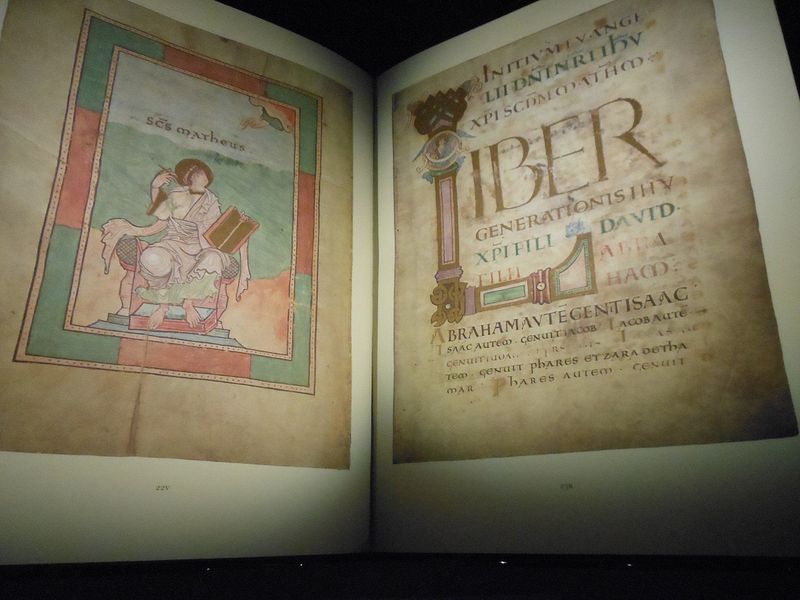 SCS MATHEUS
22V
INITIUM EVANGE
LII DNI NRI IHU
XPI SCDM MATHM
LIBER
GENERATIONIS IHU
XPI FILI DAVID·
FILII ABRA
HAM:
ABRAHAM AUTE GENT ISAAC·
ISAAC AUTEM· GENUIT IACOB· IACOB AUTE·
GENUIT
TEM· GENUIT PHARES ET ZARA DE THA
MAR· PHARES AUTEM· GENUIT